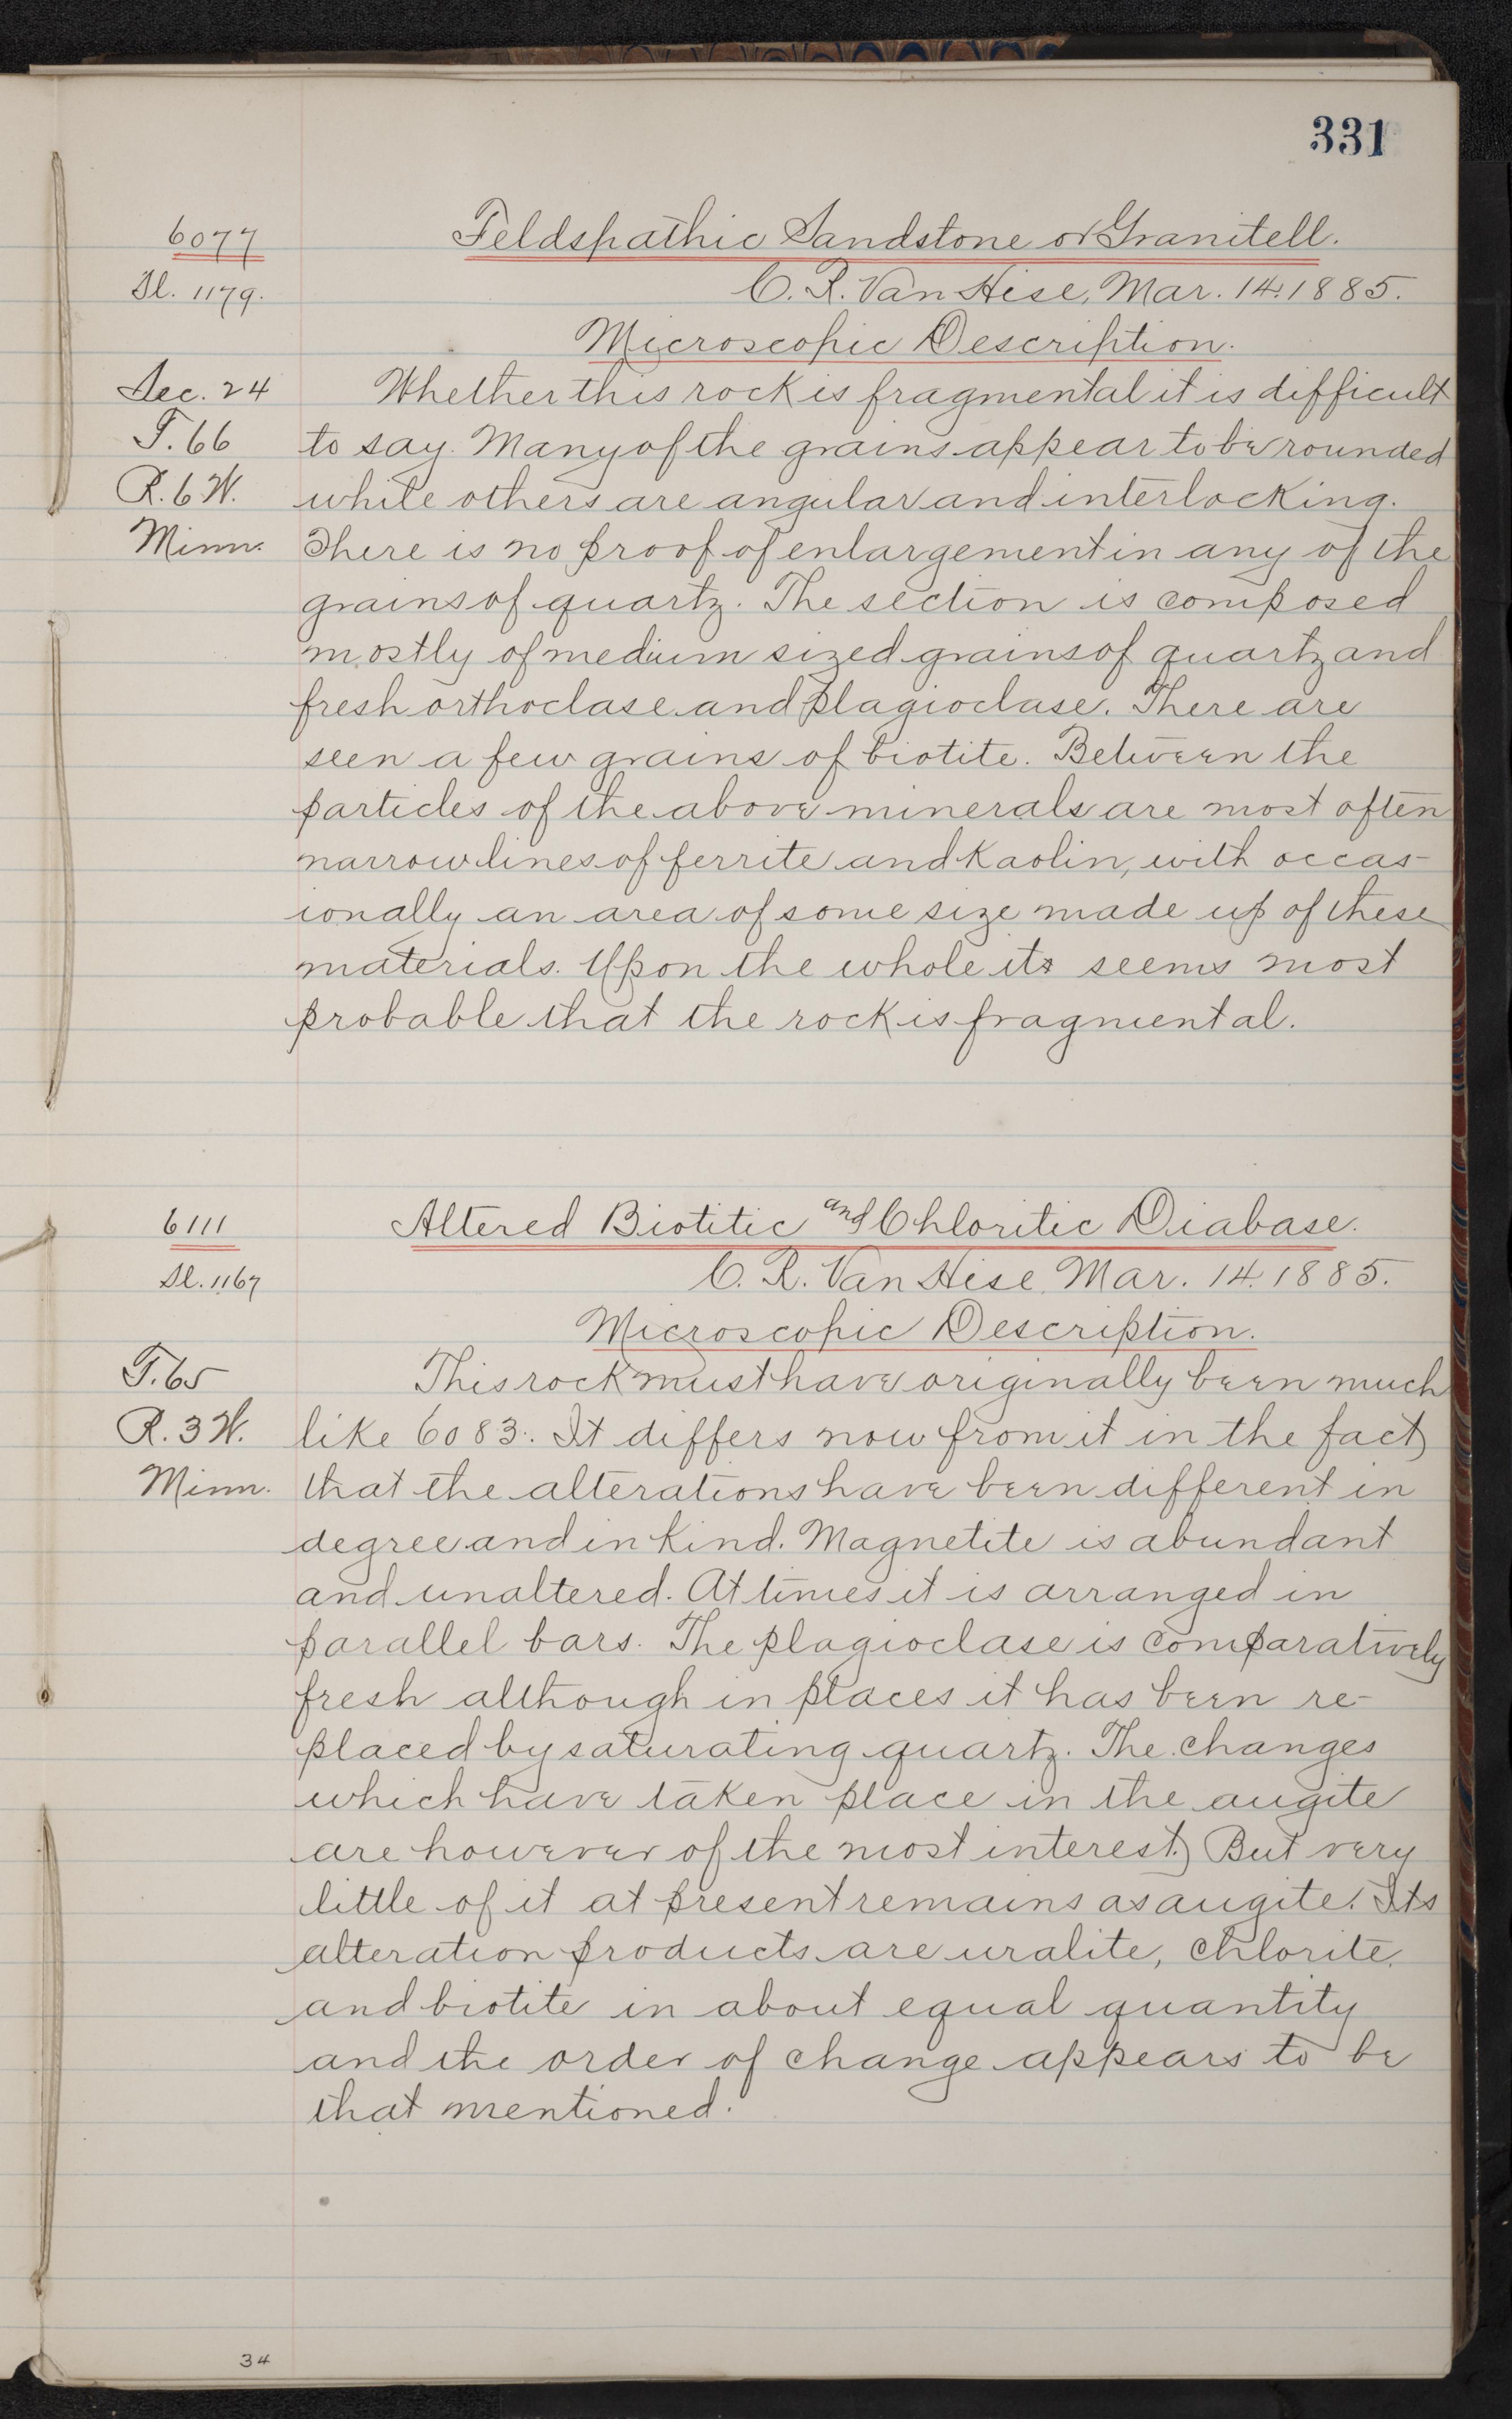 331
6077 Feldspathic Sandstone or Granitell.
Sl. 1179. C. R. Van Hise, Mar. 14. 1885.
Microscopic Description.
Sec. 24 Whether this rock is fragmental it is difficult
T. 66 to say. Many of the grains appear to be rounded
R. 6 W. while others are angular and interlocking.
Minn. There is no proof of enlargement in any of the
grains of quartz. The section is composed
mostly of medium sized grains of quartz and
fresh orthoclase and plagioclase. There are
seen a few grains of biotite. Between the
particles of the above minerals are most often
narrow lines of ferrite and Kaolin, with occas-
ionally an area of some size made up of these
materials. Upon the whole its seems most
probable that the rock is fragmental.
6111 Altered Biotitic and Chloritic Diabase.
Sl. 1167 C. R. Van Hise, Mar. 14. 1885.
Microscopic Description.
T. 65 This rock must have originally been much
R. 3 W. like 6083. It differs now from it in the fact
Minn. that the alterations have been different in
degree and in Kind. Magnetite is abundant
and unaltered. At times it is arranged in
parallel bars. The plagioclase is comparatively
fresh although in places it has been re-
placed by saturating quartz. The changes
which have taken place in the augite
are however of the most interest. But very
little of it at present remains as augite. Its
alteration products are uralite, chlorite,
and biotite in about equal quantity
and the order of change appears to be
that mentioned.
34